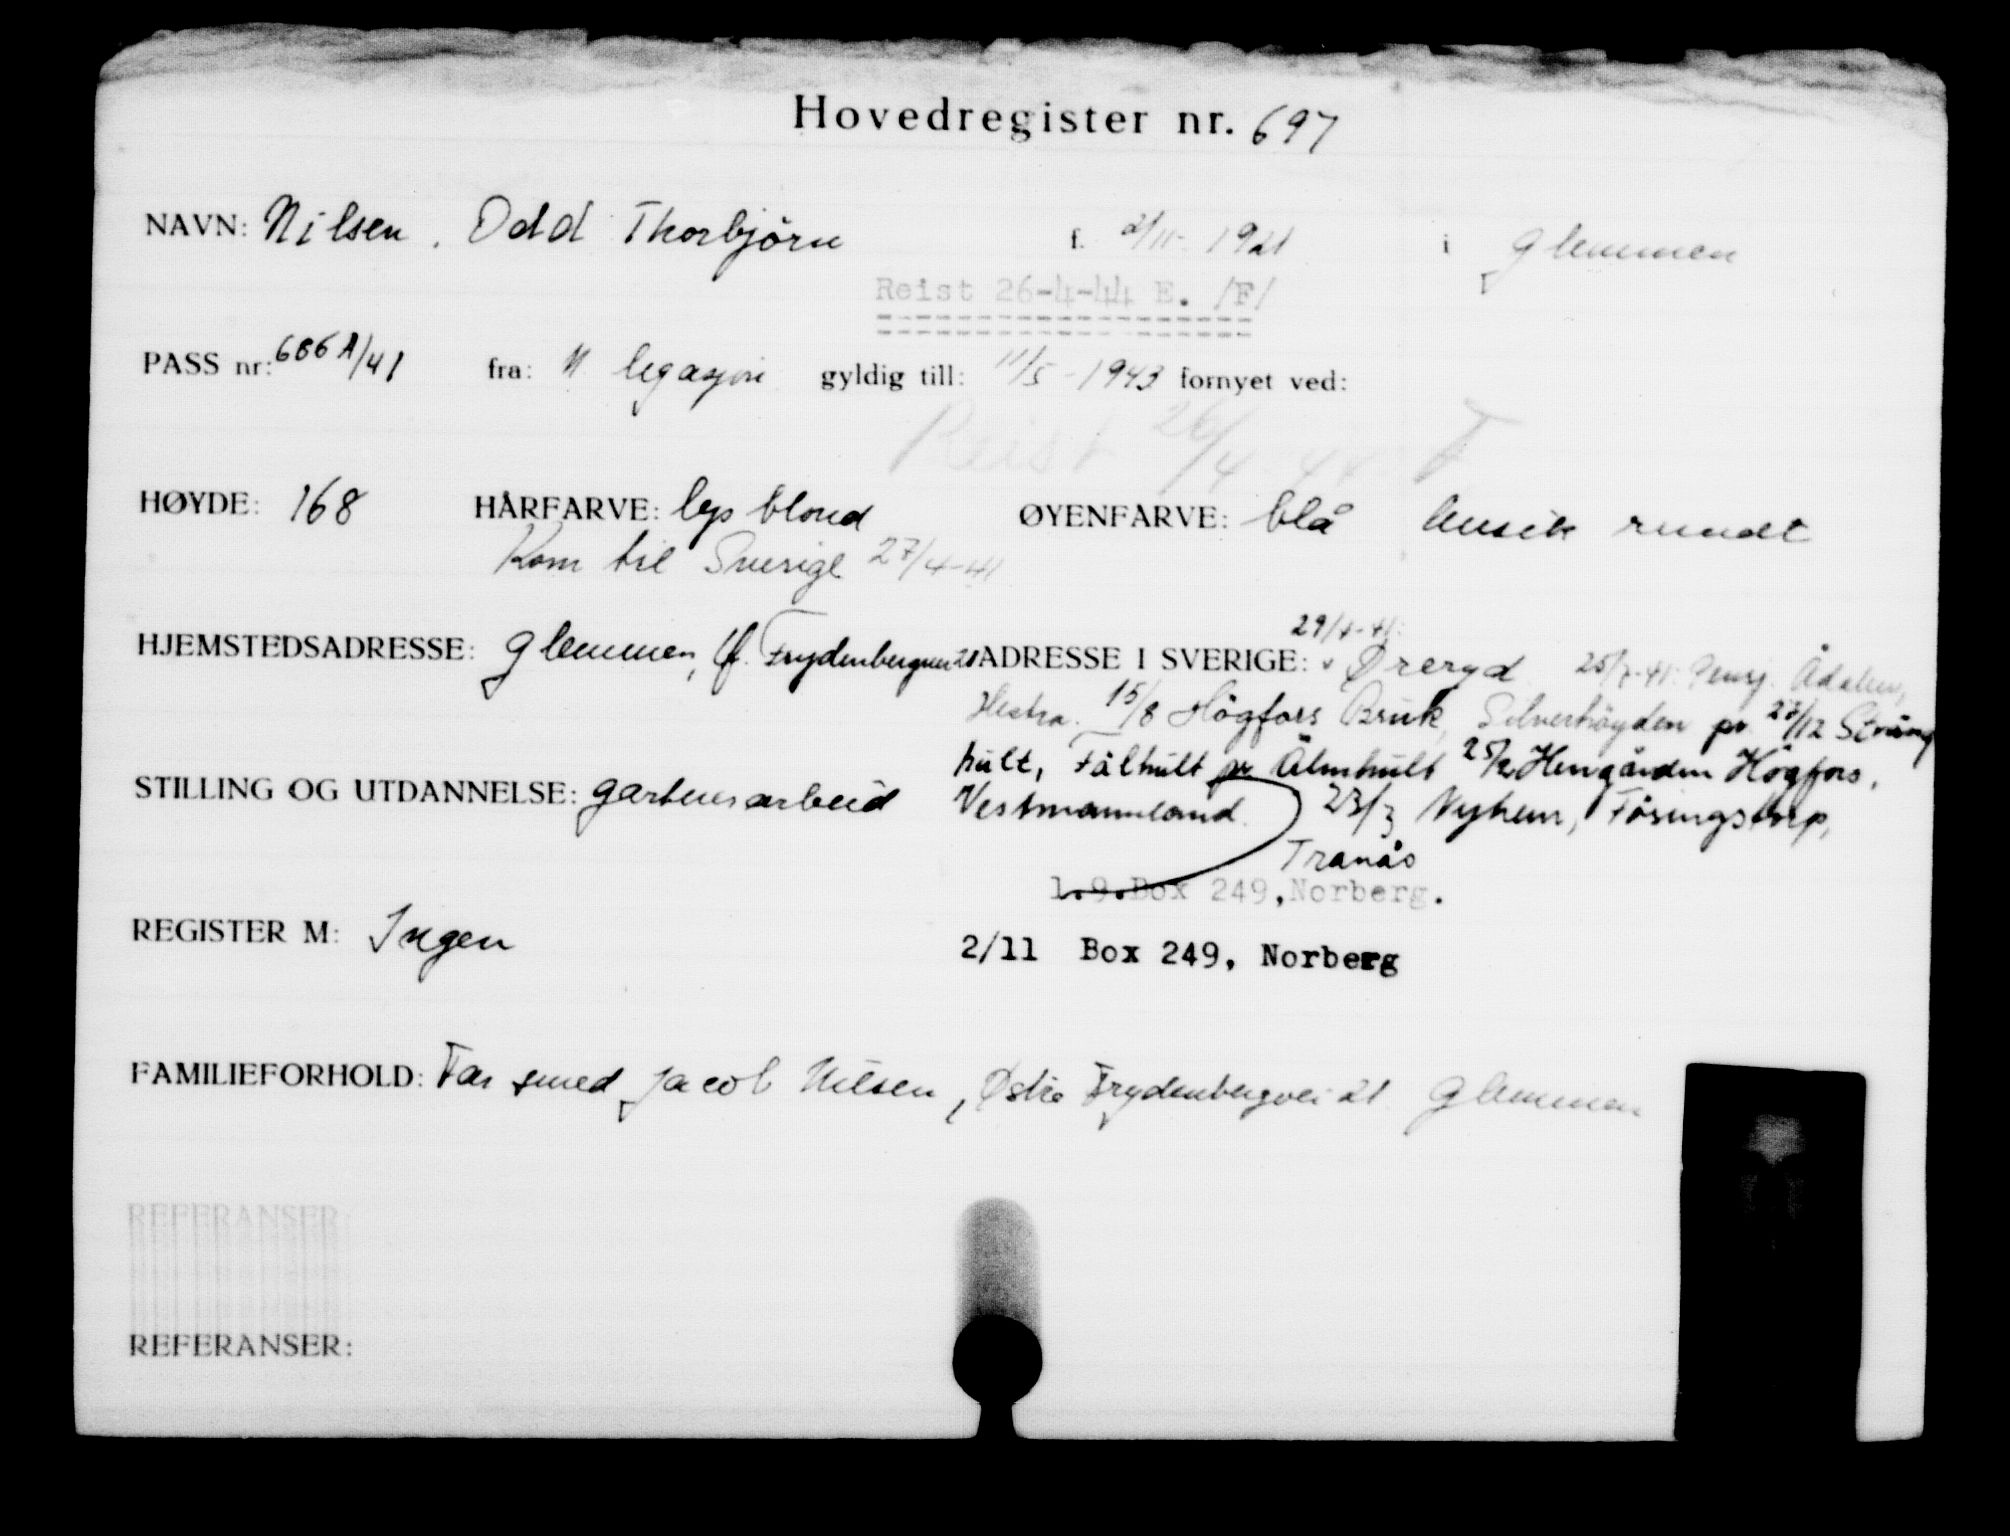 Hovedregister nr. 697
NAVN: Nilsen, Odd Thorbjörn f. 2/11- 1921 i Glemmen
Reist 26-4-44 E. /F/
PASS nr: 686A/41 fra: N legasjon gyldig till: 11/5 - 1943 fornyet ved:
Reist 26/4-44 F
HØYDE: 168 HÅRFARVE: lys blond ØYENFARVE: blå Ansikt rundt
Kom til Sverige 27/4-41
29/4-41:
HJEMSTEDSADRESSE: Glemmen, Ø. Frydenbergvei 21 ADRESSE I SVERIGE: Øreryd 25/7-41: Pensj. Ådalen,
Hestra. 15/8 Högfors Bruk, Silverhöyden pr 27/12 Sträng
hult, Fälhult pr Älmhult 25/2 Herrgården Högfors,
STILLING OG UTDANNELSE: gartnerarbeid Vestmannland. 23/3 Nyhem, Föringstorp,
Tranås
1.9.Box 249,Norberg.
REGISTER M: Ingen
2/11 Box 249, Norberg
FAMILIEFORHOLD: Far smed Jacob Nilsen, Østre Frydenbergvei 21 Glemmen
REFERANSER:
REFERANSER: